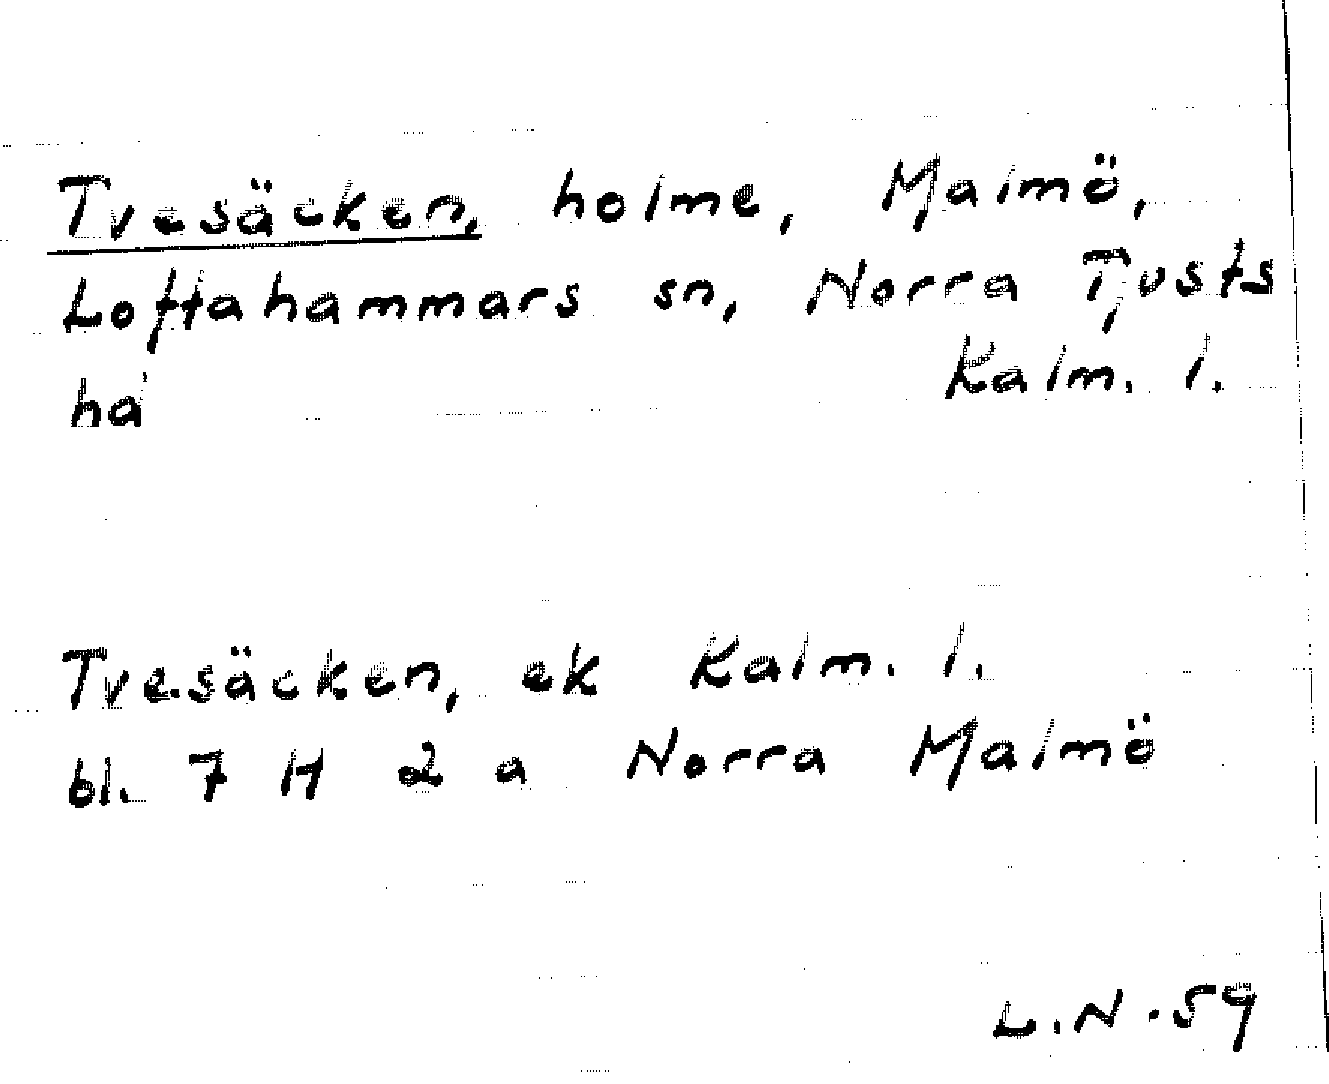 Tvesäcken, holme, Malmö,
Loftahammars sn, Norra Tjusts
Kalm. l.
hd
Tvesäcken, ek Kalm. l.
bl. 7 H 2 a Norra Malmö
L.N.59